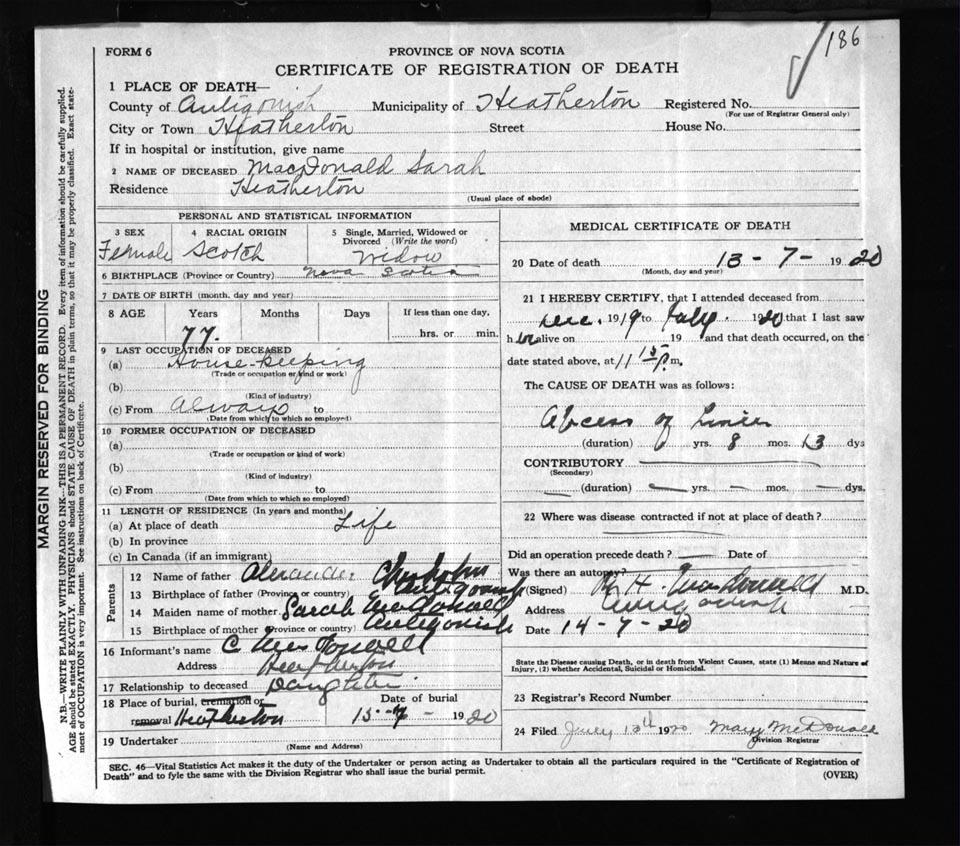 186
FORM 6
PROVINCE OF NOVA SCOTIA
CERTIFICATE OF REGISTRATION OF DEATH
1 PLACE OF DEATH—
County of Antigonish Municipality of Heatherton Registered No.
(For use of Registrar General only)
City or Town Heatherton Street House No.
If in hospital or institution, give name
2 NAME OF DECEASED MacDonald Sarah
Residence Heatherton
(Usual place of abode)
PERSONAL AND STATISTICAL INFORMATION
3 SEX 4 RACIAL ORIGIN 5 Single, Married, Widowed or
Divorced (Write the word)
Female Scotch Widow
6 BIRTHPLACE (Province or Country) Nova Scotia
7 DATE OF BIRTH (month, day and year)
8 AGE Years Months Days If less than one day,
77 hrs. or min.
9 LAST OCCUPATION OF DECEASED
(a) House-keeping
(Trade or occupation or kind or work)
(b)
(Kind of industry)
(c) From Always to
(Date from which to which so employed)
10 FORMER OCCUPATION OF DECEASED
(a)
(Trade or occupation or kind of work)
(b)
(Kind of industry)
(c) From to
(Date from which to which so employed)
11 LENGTH OF RESIDENCE (In years and months)
(a) At place of death Life
(b) In province
(c) In Canada (if an immigrant)
Parents
12 Name of father Alexander Chisholm
13 Birthplace of father (Province or country) Antigonish
14 Maiden name of mother Sarah McDonald
15 Birthplace of mother (Province or country) Antigonish
16 Informant's name C McDonald
Address Heatherton
17 Relationship to deceased Daughter
18 Place of burial, cremation or Date of burial
removal Heatherton 15-7- 1920
19 Undertaker
(Name and Address)
MEDICAL CERTIFICATE OF DEATH
20 Date of death 13-7- 1920
(Month, day and year)
21 I HEREBY CERTIFY, that I attended deceased from
Dec. 1919 to July 1920 that I last saw
her alive on 19 and that death occurred, on the
date stated above, at 11 15 P m.
The CAUSE OF DEATH was as follows:
Abcess of Liver
(duration) yrs. 8 mos. 13 dys
CONTRIBUTORY
(Secondary)
(duration) yrs. mos. dys.
22 Where was disease contracted if not at place of death?
Did an operation precede death? Date of
Was there an autopsy?
(Signed) McDonald M.D.
Address Antigonish
Date 14-7-20
State the Disease causing Death, or in death from Violent Causes, state (1) Means and Nature of
Injury, (2) whether Accidental, Suicidal or Homicidal.
23 Registrar's Record Number
24 Filed July 13th 1920 Mary McDonald
Division Registrar
SEC. 46—Vital Statistics Act makes it the duty of the Undertaker or person acting as Undertaker to obtain all the particulars required in the "Certificate of Registration of
Death" and to fyle the same with the Division Registrar who shall issue the burial permit.
(OVER)
MARGIN RESERVED FOR BINDING
N.B.—WRITE PLAINLY WITH UNFADING INK—THIS IS A PERMANENT RECORD. Every item of information should be carefully supplied.
AGE should be stated EXACTLY. PHYSICIANS should STATE CAUSE OF DEATH in plain terms, so that it may be properly classified. Exact state-
ment of OCCUPATION is very important. See instructions on back of Certificate.